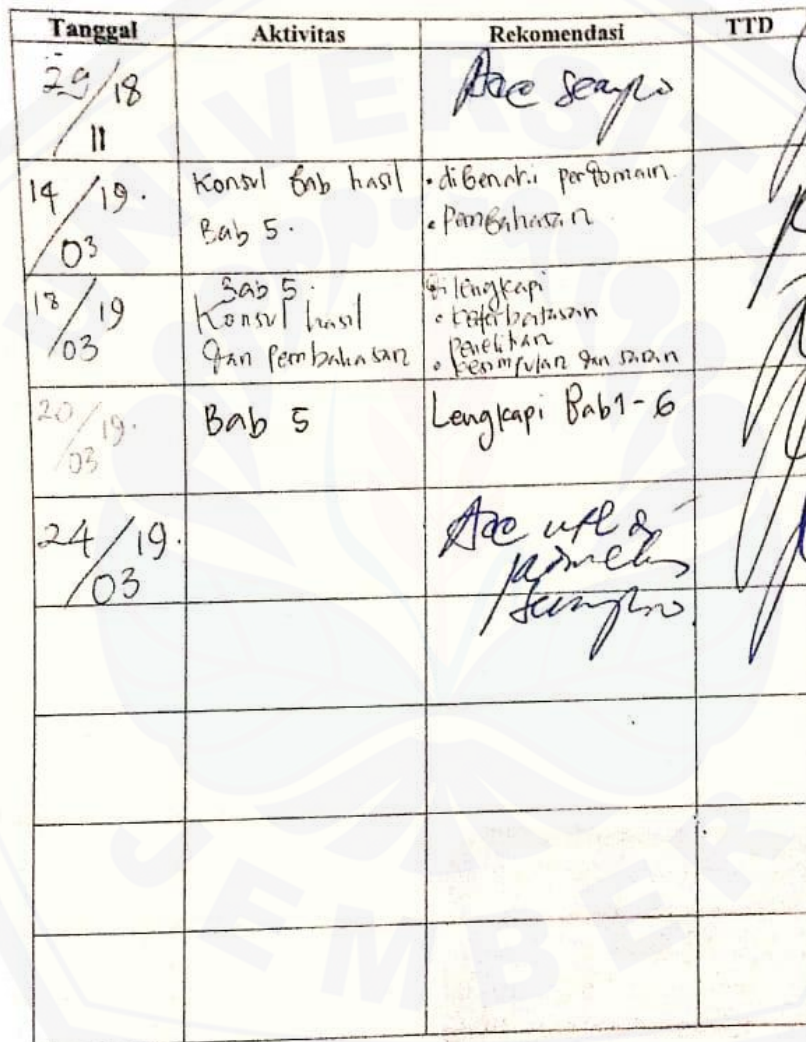 Tanggal Aktivitas Rekomendasi TTD
29/18 11
Acc sempro
14/19. 03
Konsul Bab hasil
Bab 5.
• dibenahi perdomain.
• Pembahasan
18/19 03
Bab 5.
Konsul hasil
dan Pembahasan
dilengkapi
• keterbatasan
penelitian
• kesimpulan dan saran
20/19. 03
Bab 5
Lengkapi Bab 1-6
24/19. 03
Acc
UNIVERSITAS
JEMBER